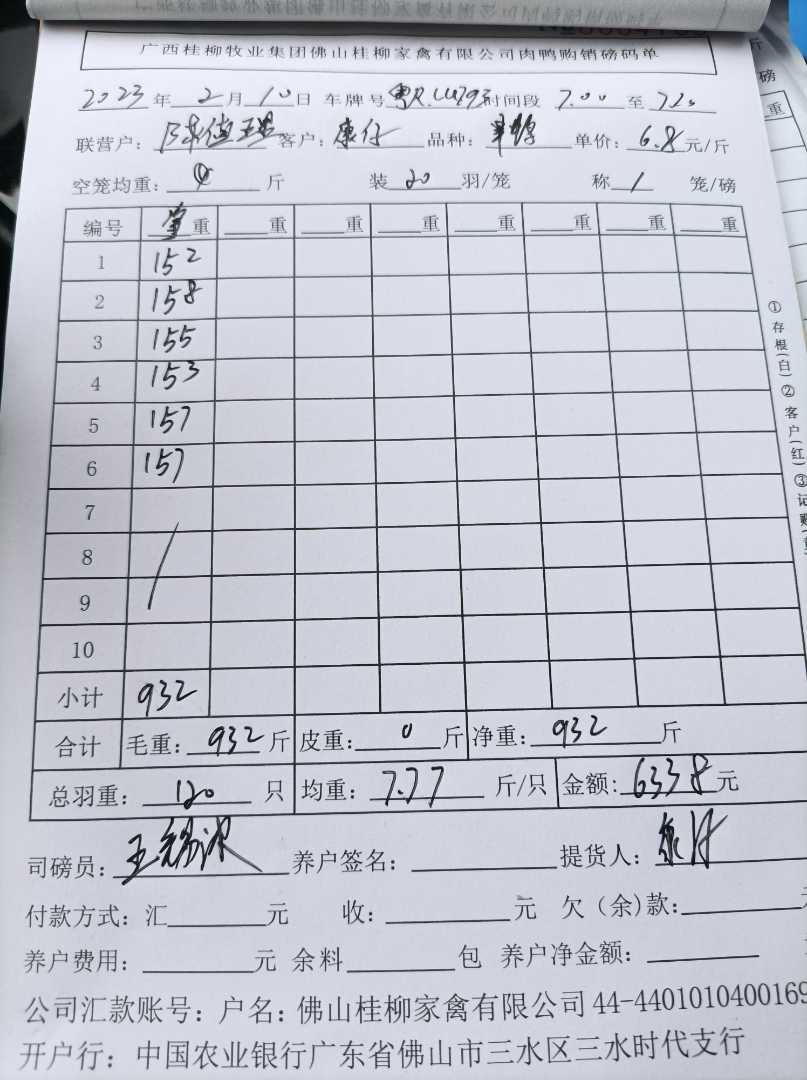 广西桂柳牧业集团佛山桂柳家禽有限公司肉鸭购销磅码单
2023年2月10日 车牌号 时间段 7.00 至 7.20
联营户: 客户: 康仔 品种: 单价: 6.8 元/斤
空笼均重: 0 斤 装 20 羽/笼 称 1 笼/磅
编号 重 重 重 重 重 重 重 重
1 152
2 158
3 155
4 153
5 157
6 157
7
8
9
10
小计 932
合计 毛重: 932 斤 皮重: 0 斤 净重: 932 斤
总羽重: 120 只 均重: 7.77 斤/只 金额: 6338 元
司磅员: 养户签名: 提货人: 康仔
付款方式: 汇 元 收: 元 欠(余)款:
养户费用: 元 余料 包 养户净金额:
公司汇款账号: 户名: 佛山桂柳家禽有限公司 44-4401010400169
开户行: 中国农业银行广东省佛山市三水区三水时代支行
①存根(白)②客户(红)③记账(
斤
磅
重